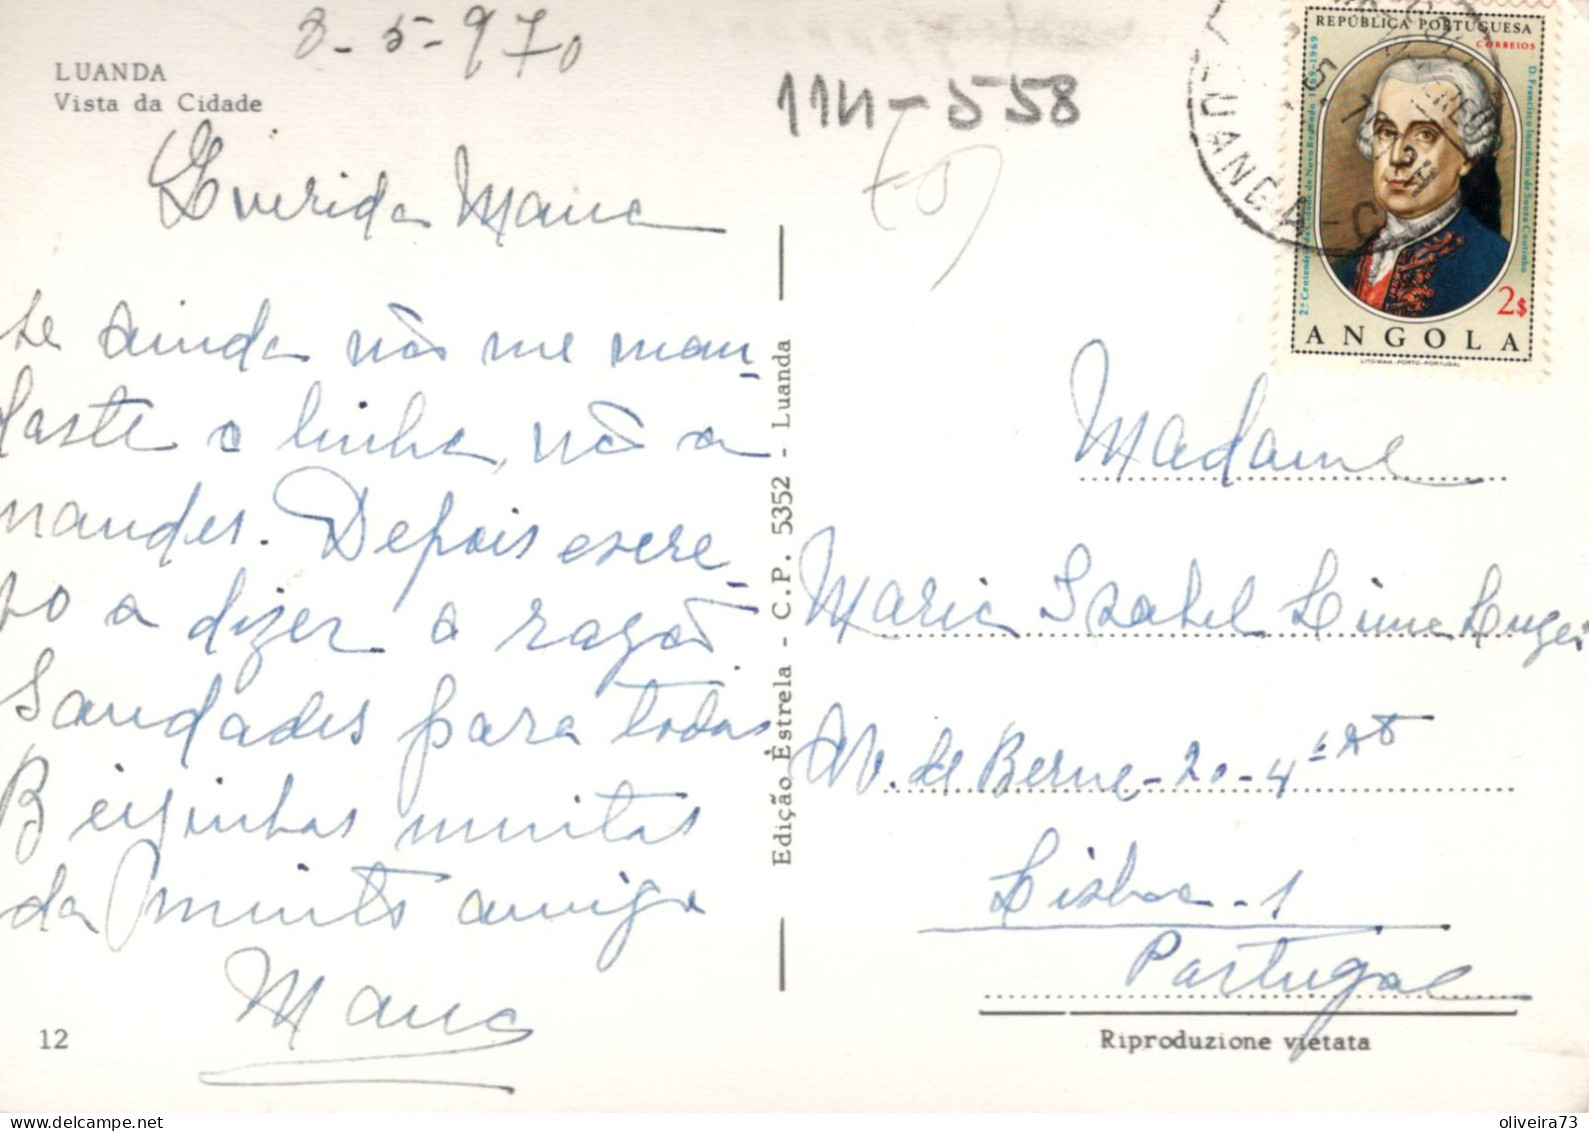 3-5-970
LUANDA
Vista da Cidade
114-558
Querida Mana
Se ainda não me man-
daste a linha, não a
mandes. Depois escre-
vo a dizer a razão
Saudades para todos
Beijinhos muitos
da muito amiga
Mana
12
Edição Estrela - C.P. 5352 - Luanda
REPÚBLICA PORTUGUESA
CORREIOS
2.º Centenário da Cidade de Novo Redondo 1769-1969
D. Francisco Inocêncio de Souza Coutinho
2$
ANGOLA
LITO MAIA-PORTO-PORTUGAL
Madame
Maria Isabel Lima
Av. de Berne-20-4º
Lisboa-1
Portugal
Riproduzione vietata
oliveira73